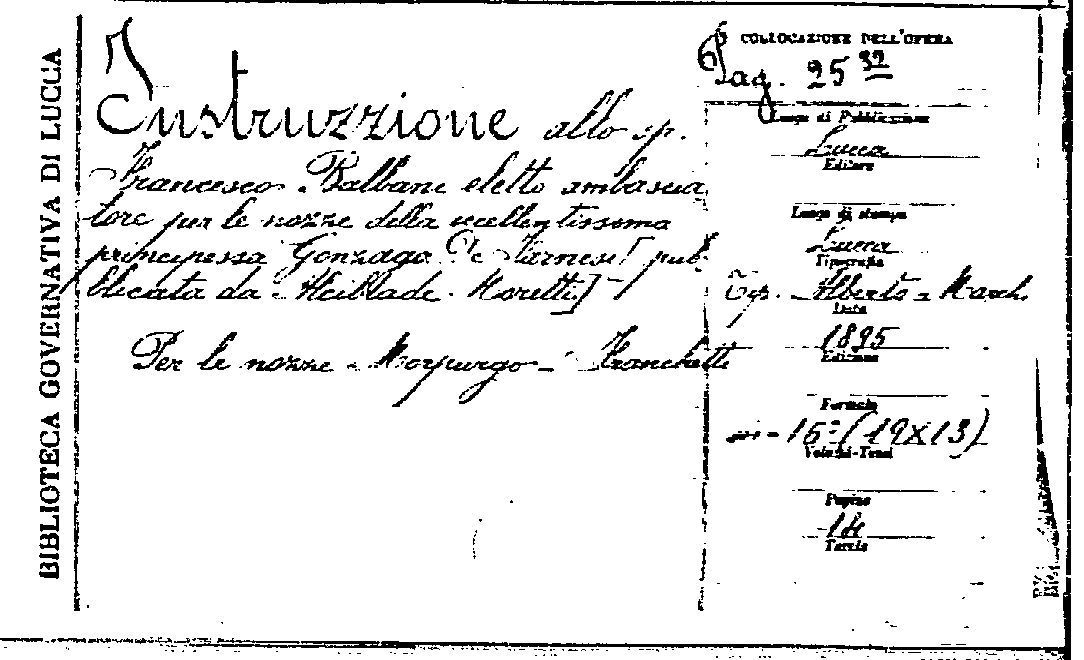 BIBLIOTECA GOVERNATIVA DI LUCCA
Instruzzione allo sp.
Francesco Balbani eletto ambascia
tore per le nozze della eccellentissoma
principessa Gonzaga De Farnese [pub-
blicata da Alcibiade Moretti]
Per le nozze Morpurgo - Franchetti
COLLOCAZIONE DELL'OPERA
Pag. 25 32
Luogo di Pubblicazione
Lucca
Editore
Luogo di stampa
Lucca
Tipografia
Tip. Alberto Marchi
Data
1895
Edizione
Formato
in-16° (19X13)
Volumi-Tomi
Pagine
14
Tavole